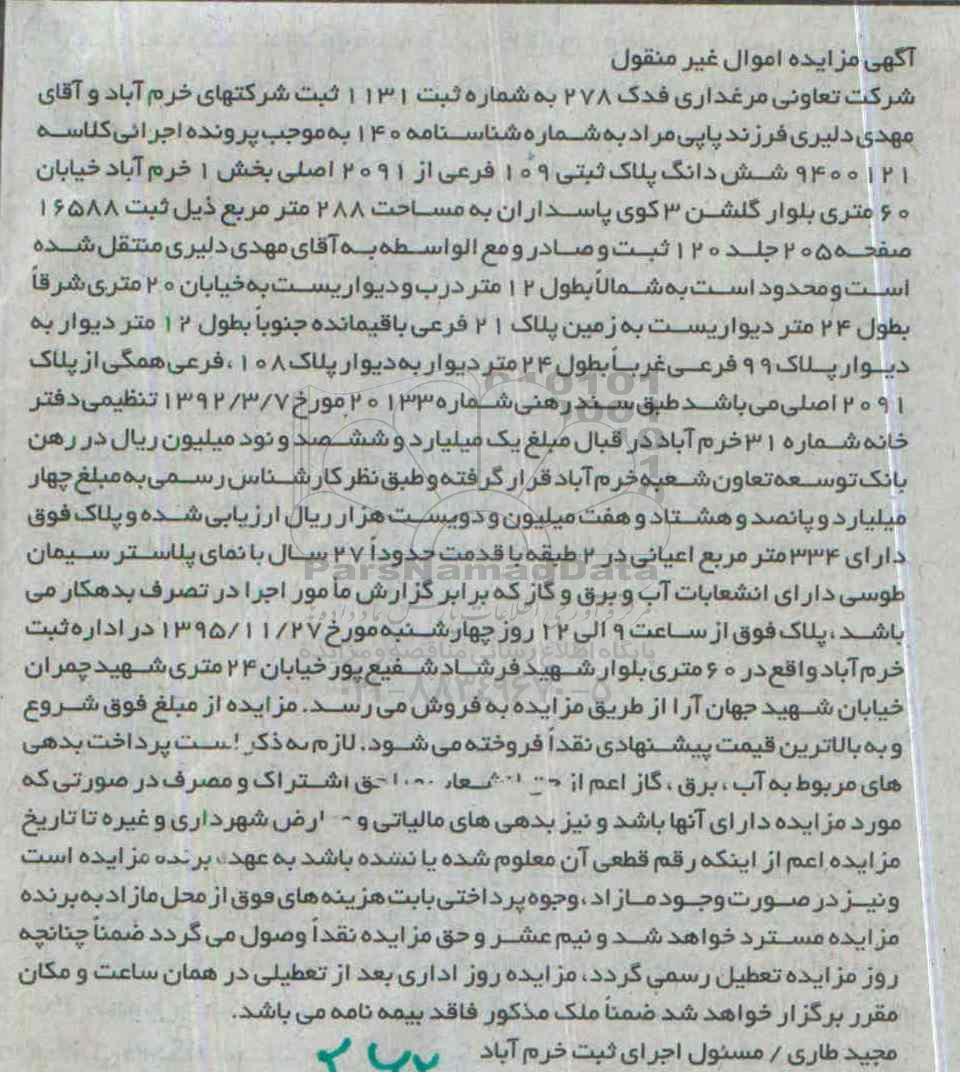 آگهی مزایده اموال غیر منقول
شرکت تعاونی مرغداری فدک ۲۷۸ به شماره ثبت ۱۱۳۱ ثبت شرکتهای خرم آباد و آقای
مهدی دلیری فرزند پاپی مراد به شماره شناسنامه ۱۴۰ به موجب پرونده اجرائی کلاسه
۹۴۰۰۱۲۱ شش دانگ پلاک ثبتی ۱۰۹ فرعی از ۲۰۹۱ اصلی بخش ۱ خرم آباد خیابان
۶۰ متری بلوار گلشن ۳ کوی پاسداران به مساحت ۲۸۸ متر مربع ذیل ثبت ۱۶۵۸۸
صفحه ۲۰۵ جلد ۱۲۰ ثبت و صادر و مع الواسطه به آقای مهدی دلیری منتقل شده
است و محدود است به شمالاً بطول ۱۲ متر درب و دیواریست به خیابان ۲۰ متری شرقاً
بطول ۲۴ متر دیواریست به زمین پلاک ۲۱ فرعی باقیمانده جنوباً بطول ۱۲ متر دیوار به
دیوار پلاک ۹۹ فرعی غرباً بطول ۲۴ متر دیوار به دیوار پلاک ۱۰۸ ، فرعی همگی از پلاک
۲۰۹۱ اصلی می باشد طبق سند رهنی شماره ۲۰۱۳۳ مورخ ۱۳۹۲/۳/۷ تنظیمی دفتر
خانه شماره ۳۱ خرم آباد در قبال مبلغ یک میلیارد و ششصد و نود میلیون ریال در رهن
بانک توسعه تعاون شعبه خرم آباد قرار گرفته و طبق نظر کارشناس رسمی به مبلغ چهار
میلیارد و پانصد و هشتاد و هفت میلیون و دویست هزار ریال ارزیابی شده و پلاک فوق
دارای ۳۳۴ متر مربع اعیانی در ۲ طبقه با قدمت حدوداً ۲۷ سال با نمای پلاستر سیمان
ParsNamadData
طوسی دارای انشعابات آب و برق و گاز که برابر گزارش مأمور اجرا در تصرف بدهکار می
باشد ، پلاک فوق از ساعت ۹ الی ۱۲ روز چهارشنبه مورخ ۱۳۹۵/۱۱/۲۷ در اداره ثبت
پایگاه اطلاع رسانی مناقصه و مزایده
خرم آباد واقع در ۶۰ متری بلوار شهید فرشاد شفیع پور خیابان ۲۴ متری شهید چمران
۰۲۱-۸۸۳۴۹۶۷۰-۵
خیابان شهید جهان آرا از طریق مزایده به فروش می رسد. مزایده از مبلغ فوق شروع
و به بالاترین قیمت پیشنهادی نقداً فروخته می شود. لازم به ذکر است پرداخت بدهی
های مربوط به آب ، برق ، گاز اعم از حق اشتراک و مصرف در صورتی که
مورد مزایده دارای آنها باشد و نیز بدهی های مالیاتی و عوارض شهرداری و غیره تا تاریخ
مزایده اعم از اینکه رقم قطعی آن معلوم شده یا نشده باشد به عهده برنده مزایده است
و نیز در صورت وجود مازاد ، وجوه پرداختی بابت هزینه های فوق از محل مازاد به برنده
مزایده مسترد خواهد شد و نیم عشر و حق مزایده نقداً وصول می گردد ضمناً چنانچه
روز مزایده تعطیل رسمی گردد، مزایده روز اداری بعد از تعطیلی در همان ساعت و مکان
مقرر برگزار خواهد شد ضمناً ملک مذکور فاقد بیمه نامه می باشد.
مجید طاری / مسئول اجرای ثبت خرم آباد